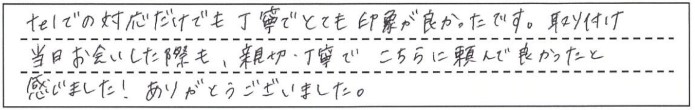 telでの対応だけでも丁寧でとても印象が良かったです。取り付け
当日お会いした際も、親切・丁寧で こちらに頼んで良かったと
感じました！ ありがとうございました。